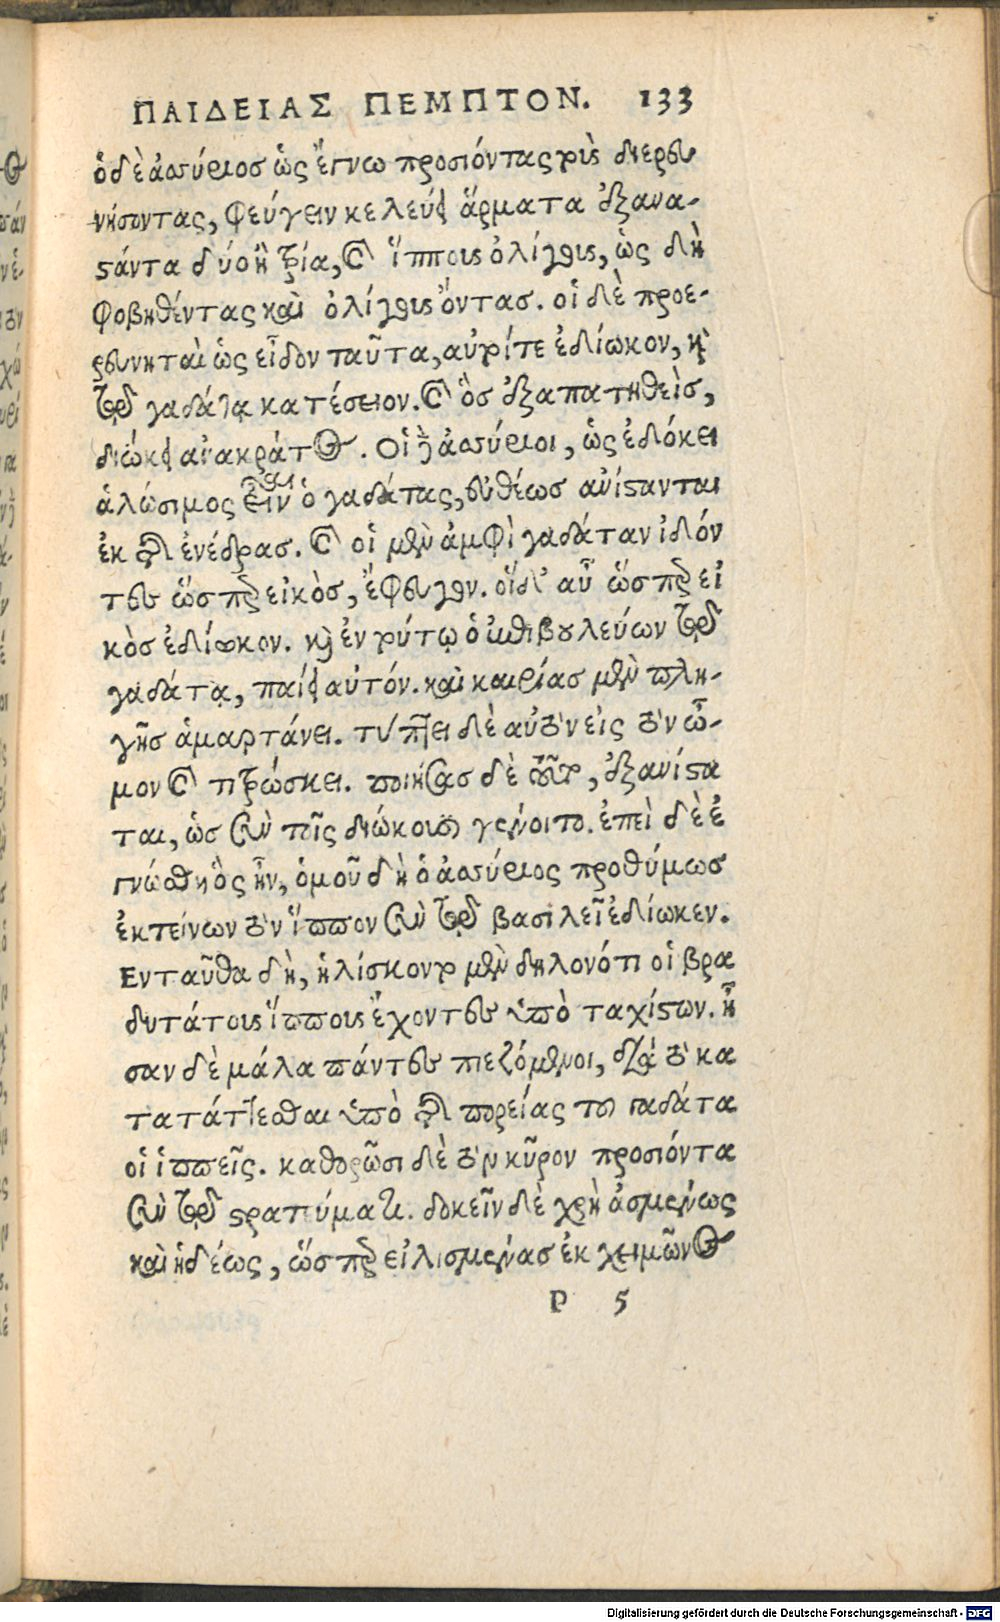 ΠΑΙΔΕΙΑΣ ΠΕΜΠΤΟΝ. 133
ὁ δὲ ἀσσύριος ὡς ἔγνω προσιόντας τοὺς διερευ
νήσοντας, φεύγειν κελεύει ἅρματα ἐξανα-
στάντα δύο ἢ τρία, καὶ ἵππους ὀλίγους, ὡς δὴ
φοβηθέντας καὶ ὀλίγους ὄντας. οἱ δὲ προε-
ρευνηταὶ ὡς εἶδον ταῦτα, αὐτοί τε ἐδίωκον, καὶ
τῷ γαδάτᾳ κατέσειον. καὶ ὃς ἐξαπατηθεὶς,
διώκει ἀνακράτος. Οἱ δὲ ἀσσύριοι, ὡς ἐδόκει
ἁλώσιμος εἶναι ὁ γαδάτας, εὐθέως ἀνίστανται
ἐκ τῆς ἐνέδρας. καὶ οἱ μὲν ἀμφὶ γαδάταν ἰδόν
τες ὥσπερ εἰκὸς, ἔφευγον. οἵδ' αὖ ὥσπερ εἰ
κὸς ἐδίωκον. καὶ ἐν τούτῳ ὁ ἐπιβουλεύων τῷ
γαδάτᾳ, παίει αὐτόν. καὶ καιρίας μὲν πλη-
γῆς ἁμαρτάνει. τύπτει δὲ αὐτὸν εἰς τὸν ὦ-
μον καὶ τιτρώσκει. ποιήσας δὲ τοῦτο, ἐξανίστα
ται, ὡς σὺν τοῖς διώκουσι γένοιτο. ἐπεὶ δὲ ἐ
γνώσθη ὃς ἦν, ὁμοῦ δὴ ὁ ἀσσύριος προθύμως
ἐκτείνων τὸν ἵππον σὺν τῷ βασιλεῖ ἐδίωκεν.
Ενταῦθα δὴ, ἡλίσκοντο μὲν δηλονότι οἱ βρα
δυτάτους ἵππους ἔχοντες ὑπὸ ταχίστων. ἦ
σαν δὲ μάλα πάντες πιεζόμενοι, διὰ τὸ κα
τατάττεσθαι ὑπὸ τῆς πορείας τοῦ γαδάτα
οἱ ἱππεῖς. καθορῶσι δὲ τὸν κῦρον προσιόντα
σὺν τῷ στρατεύματι. δοκεῖν δὲ χρὴ ἀσμένως
καὶ ἡδέως, ὥσπερ εἰλισμένας ἐκ χειμῶνος
P 5
Digitalisierung gefördert durch die Deutsche Forschungsgemeinschaft - DFG